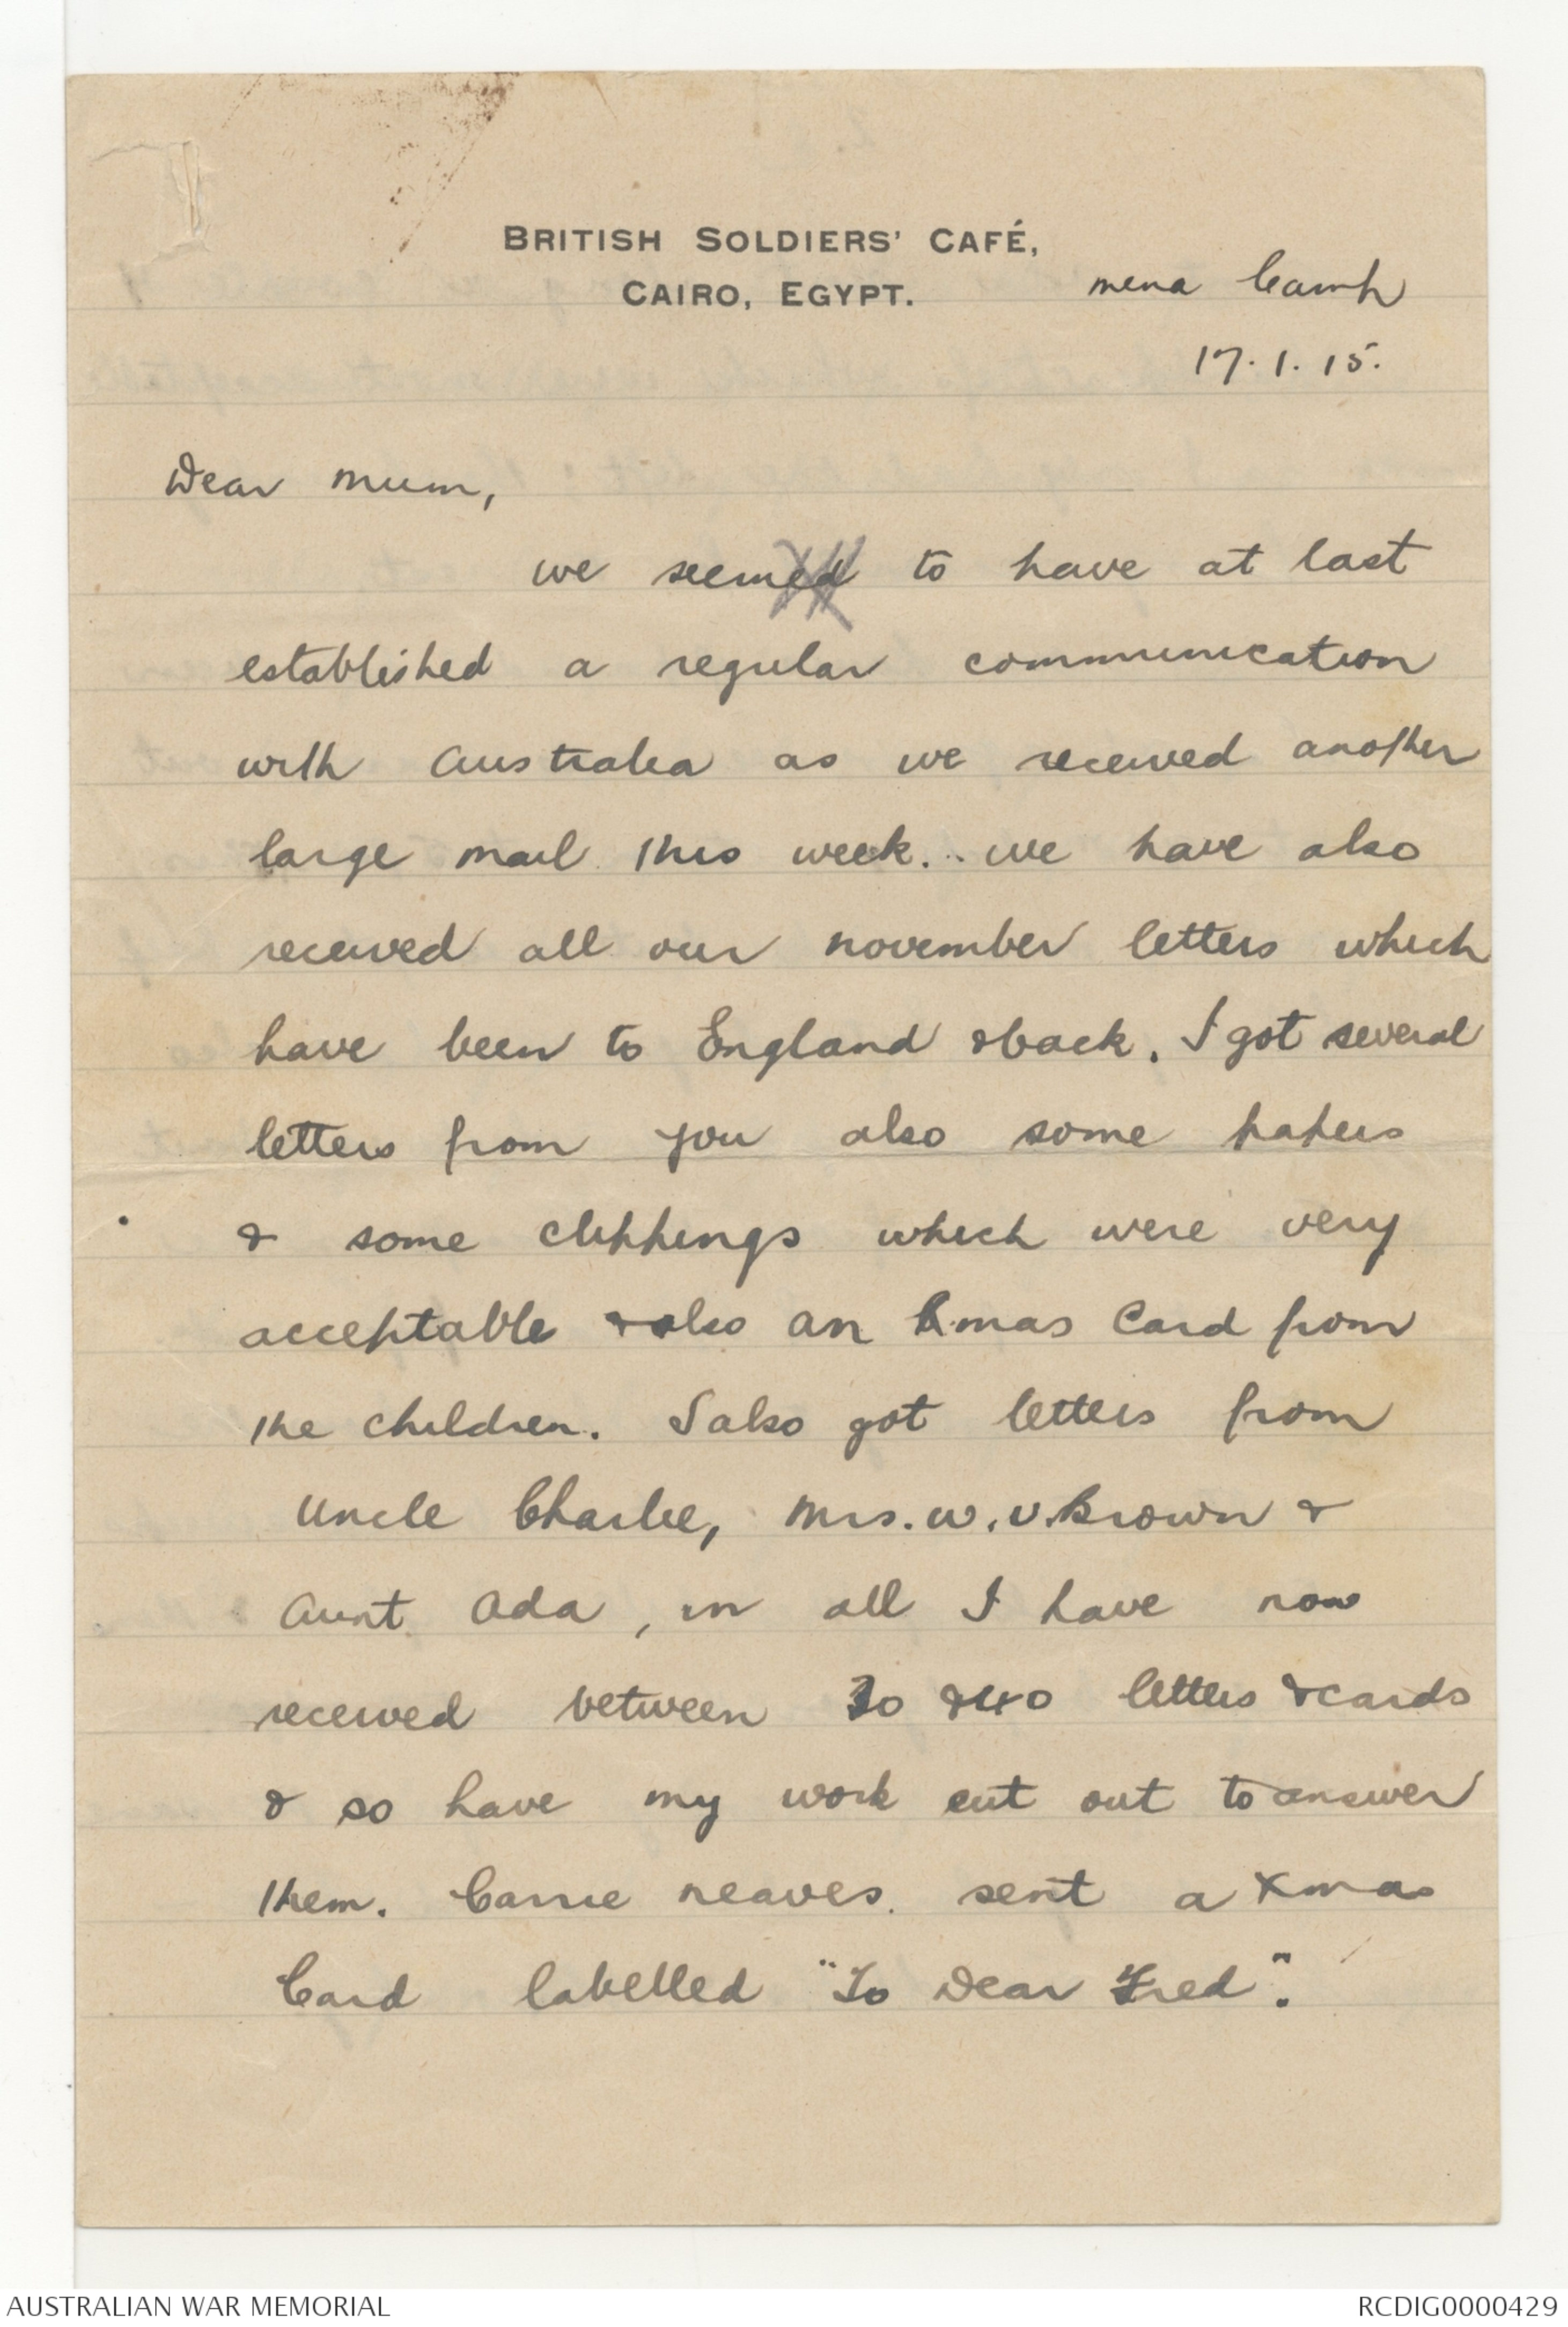 BRITISH SOLDIERS' CAFÉ,
CAIRO, EGYPT.
Mena Camp
17. 1. 15.
Dear Mum,
We seemed to have at last
established a regular communication
with Australia as we received another
large mail this week. We have also
received all our November letters which
have been to England & back. I got several
letters from you also some papers
& some clippings which were very
acceptable & also an Xmas Card from
the children. I also got letters from
Uncle Charlie, Mrs. W. V. Brown &
Aunt Ada, in all I have now
received between 30 & 40 letters & cards
& so have my work cut out to answer
them. Carrie Neaves sent a Xmas
Card labelled "To Dear Fred".
AUSTRALIAN WAR MEMORIAL
RCDIG0000429